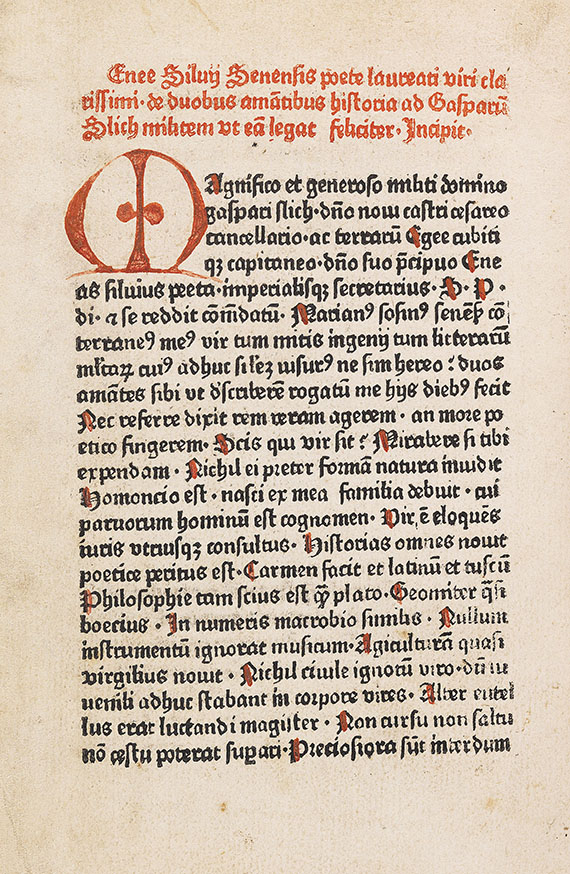 Enee Siluij Senensis poete laureati viri cla
rissimi · de duobus amātibus historia ad Gasparū
Slich militem vt eā legat feliciter · Incipit ·
MAgnifico et generoso militi domino
gaspari slich · dño noui castri cesareo
cancellario · ac terrarū Egee cubiti
qȝ capitaneo · dño suo p̄cipuo Ene
as siluius peeta · imperialisqȝ secretarius · S · P ·
di · ⁊ se reddit cōmdatū · Marianꝰ sosinꝰ senēs̄ cō
terraneꝰ meꝰ vir tum mitis ingenij tum litterarū
mltaꝝ cuiꝰ adhuc silez uisurꝰ ne sim hereo : duos
amātes sibi vt dscriberē rogatū me hijs diebꝰ fecit
Nec referre dixit rem veram agerem · an more po
etico fingerem · Scis qui vir sit ? Mirabere si tibi
expendam · Nichil ei preter formā natura inuidit
Homoncio est · nasci ex mea familia debuit · cui
paruorum hominū est cognomen · Vir ē eloquēs
iuris vtriusqȝ consultus · Historias omnes nouit
poetice peritus est · Carmen facit et latinū et tuscū
Philosophie tam scius est qͣꝫ plato · Geometer qͣsi
boecius · In numeris macrobio similis · Nullum
instrumentū ignorat musicum · Agiculturā quasi
virgilius nouit · Nichil ciuile ignotū viro · dū iu
uenili adhuc stabant in corpore vires · Alter entel
lus erat luctandi magister · Non cursu non saltu
nō cestu poterat supari · Preciosiora sūt interdum